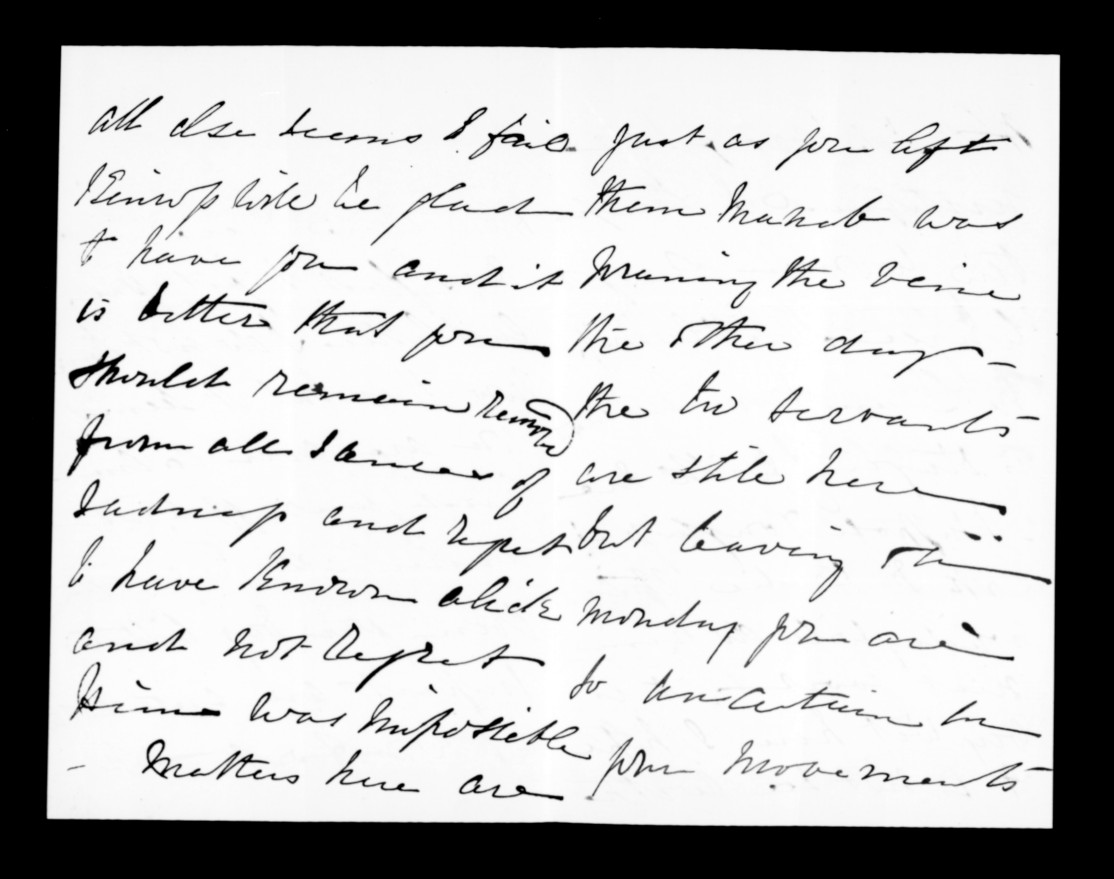 all else seems to fail
Kinross will be glad
to have you and it
is better that you
should remain removed
from all scenes of
sadness and regret
to have Known Alick
and not regret
Him was impossible
– Matters here are
just as you left
them Mahab was
pruning the vine
the other day –
the two servants
are still here
but leaving this
monday you are
so uncertain in
your movements